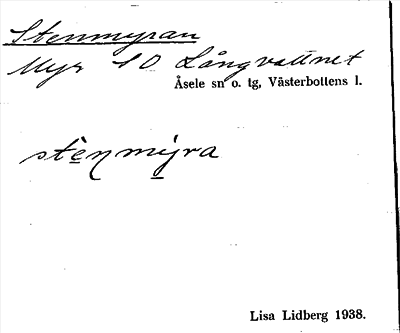 Stenmyran
Myr SO Långvattnet
Åsele sn o. tg, Västerbottens l.
stèn̥mýra
Lisa Lidberg 1938.